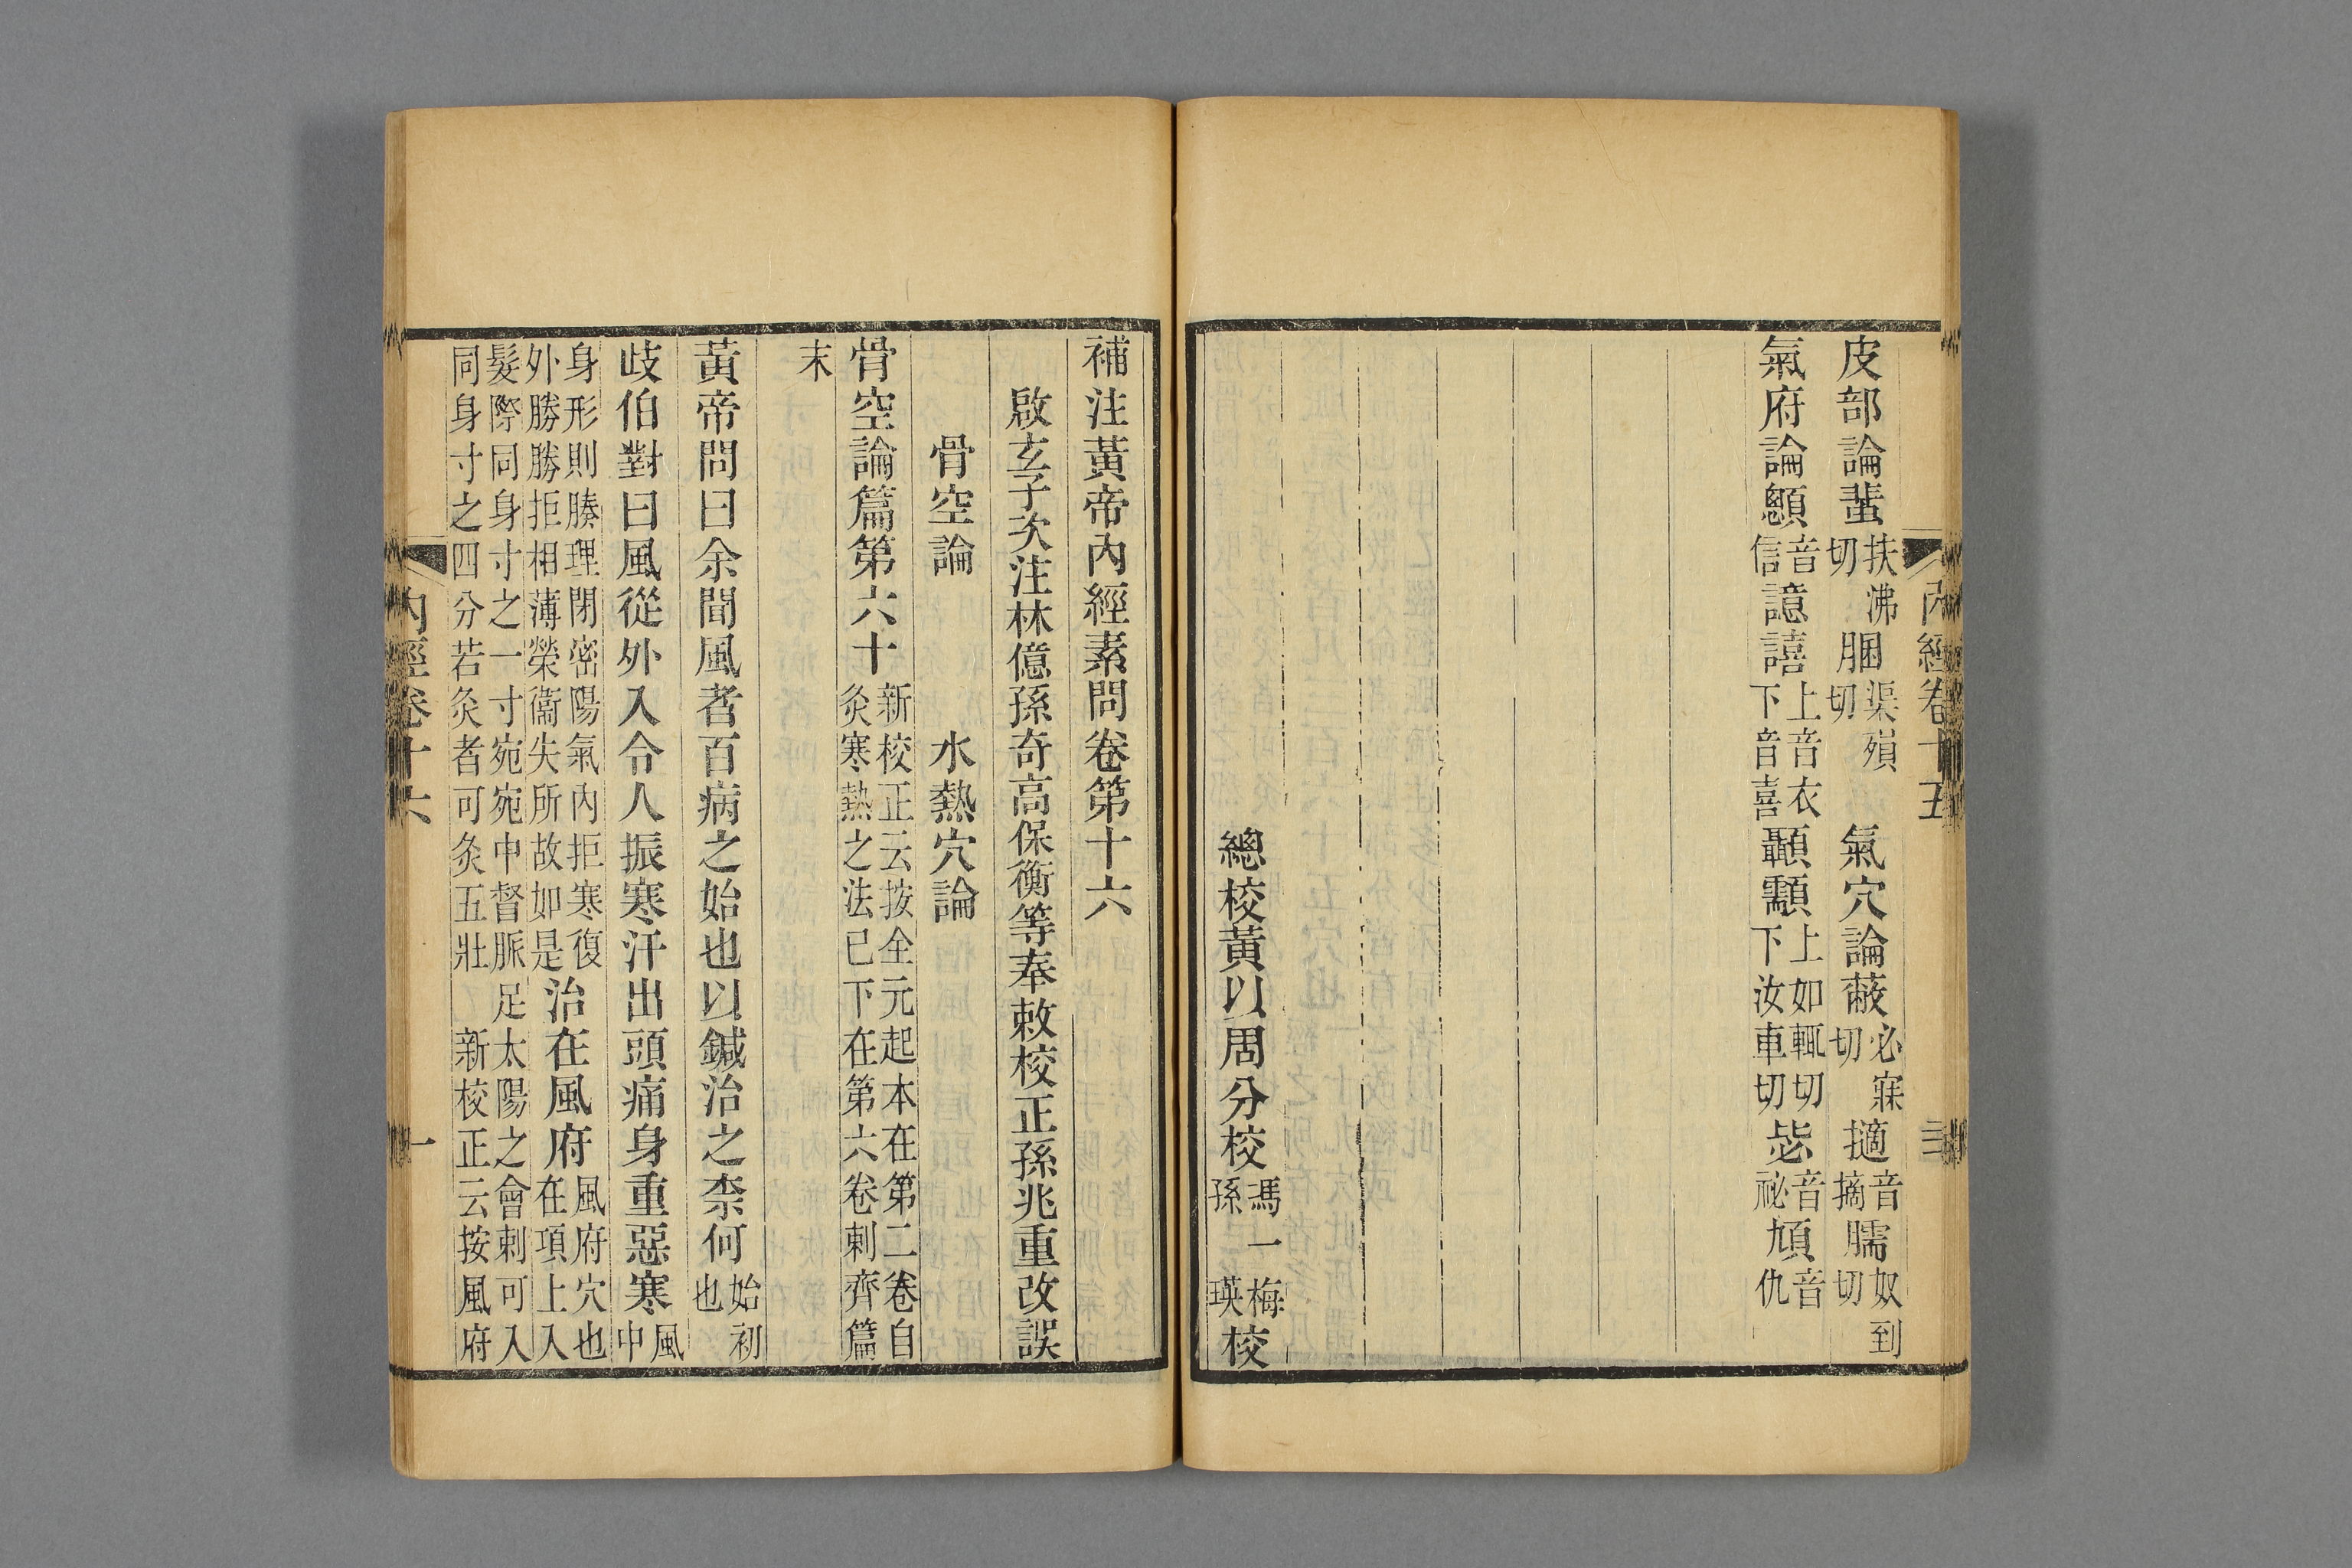 內經卷十五
皮部論蜚扶沸切 䐃渠殞切 氣穴論蔽必寐切 擿音摘臑奴到切
氣府論顖音信譩譆上音衣下音喜顳顬上如輒切下汝車切毖音祕頄音仇
總校黃以周分校馮一梅孫瑛校
補注黃帝內經素問卷第十六
啟玄子次注林億孫奇高保衡等奉敕校正孫兆重改誤
骨空論 水熱穴論
骨空論篇第六十新校正云按全元起本在第二卷自灸寒熱之法已下在第六卷刺齊篇
末
黃帝問曰余聞風者百病之始也以鍼治之柰何始初也
歧伯對曰風從外入令人振寒汗出頭痛身重惡寒風中
身形則腠理閉密陽氣內拒寒復外勝勝拒相薄榮衞失所故如是治在風府風府穴也在項上入
髮際同身寸之一寸宛宛中督脈足太陽之會刺可入同身寸之四分若灸者可灸五壯 新校正云按風府
內經卷十六 一